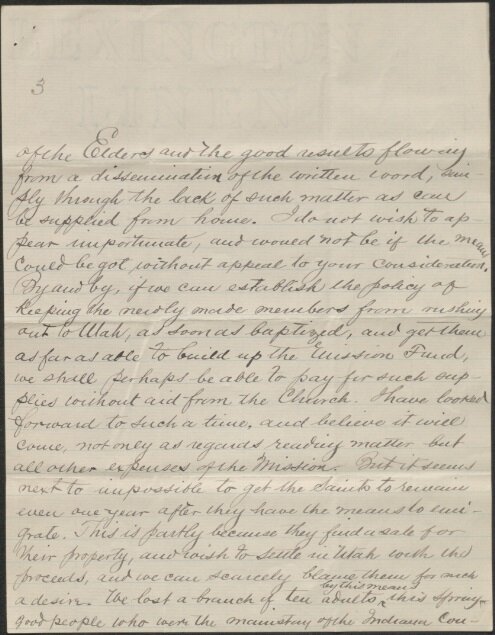 3
of the Elders and the good results flowing
from a dissemination of the written word, sim-
ply through the lack of such matter as can
be supplied from home. I do not wish to ap-
pear importunate, and would not be if the means
could be got without appeal to your consideration.
By and by, if we can establish the policy of
keeping the newly made members from rushing
out to Utah, as soon as baptized, and get them
as far as able to build up the Mission Fund,
we shall perhaps be able to pay for such sup
plies without aid from the Church. I have looked
forward to such a time, and believe it will
come, not only as regards reading matter but
all other expenses of the Mission. But it seems
next to impossible to get the Saints to remain
even one year after they have the means to emi-
grate. This is partly because they find a sale for
their property, and wish to settle in Utah with the
proceeds, and we can scarcely blame them for such
a desire. We lost a branch of ten adults by this means this spring
good people who were the mainstay of the Indiana Con-